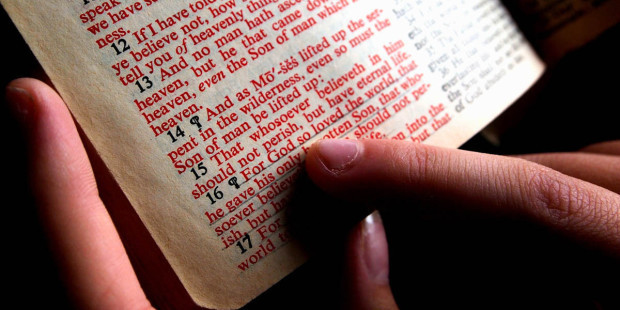 speak
we have s
ness.
12 If I have told
ye believe not, how
tell you of heavenly thing
13 And no man hath asce
heaven, but he that came dow
heaven, even the Son of man which
14 ¶ And as Mō´-s̱ĕs̱ lifted up the ser-
pent in the wilderness, even so must the
Son of man be lifted up:
15 That whosoever believeth in him
should not perish, but have eternal life.
16 ¶ For God so loved the world, that
he gave his only otten Son, that who-
soever believe should not per-
ish, but ha
17 For on into the
world to but that